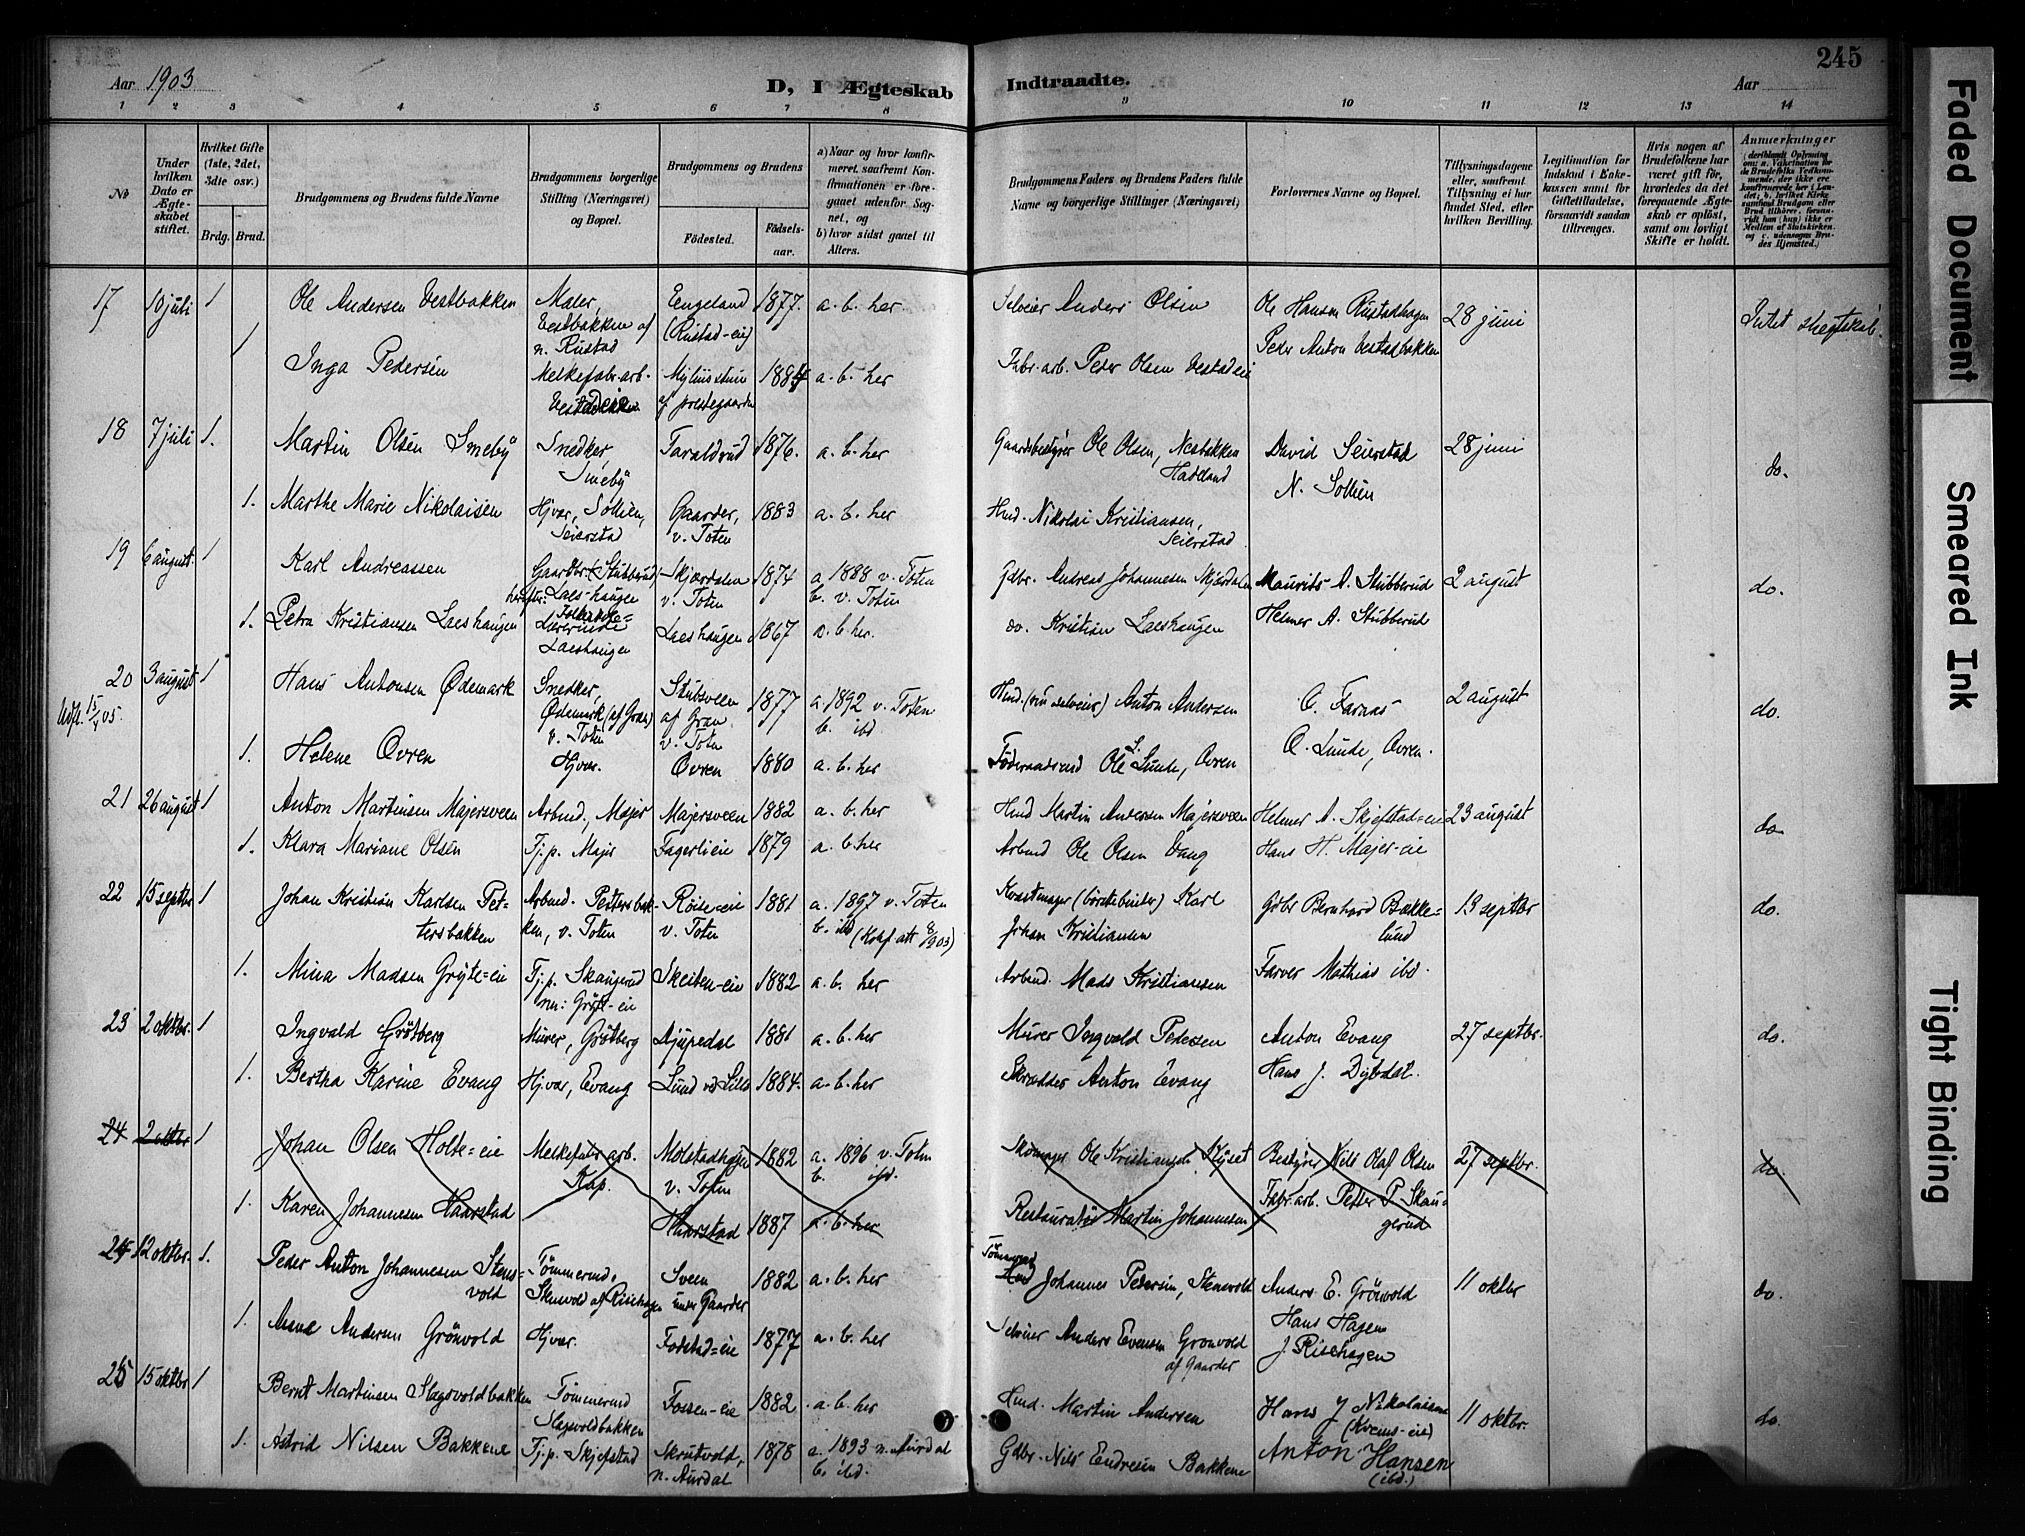 245
Aar 1903
D, I Ægteskab Indtraadte.
Aar
1 2 3 4 5 6 7 8 9 10 11 12 13 14
No
Under hvilken Dato er Ægteskabet stiftet.
Hvilket Gifte (1ste, 2det, 3dte osv.)
Brdg. Brud.
Brudgommens og Brudens fulde Navne
Brudgommens borgerlige Stilling (Næringsvei) og Bopæl.
Brudgommens og Brudens
Födested. Födselsaar.
a) Naar og hvor konfirmeret, saafremt Konfirmationen er foregaaet udenfor Sognet, og
b) hvor sidst gaaet til Alters.
Brudgommens Faders og Brudens Faders fulde Navne og börgerlige Stillinger (Næringsvei)
Forlovernes Navne og Bopæl.
Tillysningsdagene eller, saafremt Tillysning ei har fundet Sted, efter hvilken Bevilling.
Legitimation for Indskud i Enkekassen samt for Giftetilladelse, forsaavidt saadan tiltrænges.
Hvis nogen af Brudefolkene har været gift för, hvorledes da det foregaaende Ægteskab er oplöst, samt om lovligt Skifte er holdt.
Anmærkninger
17 10 juli 1 Ole Andersen Vestbakken Maler, Vestbakken af n. Rustad Eengeland (Rustad-eie) 1877. a. b. her. Selveier Anders Olsen Ole Hansen Rustadhagen 28 juni Intet slegtskab.
1 Inga Pedersen Melkefabr. arb. 1884 a. b. her Fabr. arb. Peder Olsen Vestadeie Peder Anton Vestadbakken
af prestegaarden
18 7 juli 1. Martin Olsen Smeby Snedker, Smeby Taraldrud 1876. a. b. her Gaardsbestyrer Ole Olsen, Nesbakken Hadeland David Seierstad 28 juni do.
1. Marthe Marie Nikolaisen Hjvær, Sollien, Seierstad Gaarder, v. Toten 1883 a. b. her Hmd. Nikolai Kristiansen, Seierstad N. Sollien
19 6 august 1 Karl Andreassen Gaardbr. Stubberud Laeshaugen Skjærdalen v. Toten 1874 a. 1888 v. Toten b. v. Toten Gdbr. Andreas Johannesen Skjærdalen Maurits A. Stubberud 2 august do.
1. Petra Kristiansen Laeshaugen Lærerinde Laeshaugen Laeshaugen 1867 a. b. her. do. Kristian Laeshaugen Helmer A. Stubberud
20 3 august 1 Hans Antonsen Ødemark Snedker, Ødemark (af Gran) v. Toten Stubsveen af Gran v. Toten 1877 a. 1892 v. Toten b. ibd Hmd. Anton Andersen O. Farnæs 2 august do.
Udfl. 15/4 05.
1. Helene Øvren Hjvær. Øvren 1880 a. b. her Föderaadsmd Ole L. Lunde, Øvren O. Lunde, Øvren.
21 26 august 1 Anton Martinsen Majersveen Arbmd., Majer Majersveen 1882 a. b. her Hmd Martin Andersen Majersveen Helmer A. Skjefstad=eie 23 august do
1. Klara Mariane Olsen Tj. p. Majer Fagerlieie 1879 a. b. her Arbmd Ole Olsen Vang Hans H. Majer-eie
22 15 septbr 1 Johan Kristian Karlsen Pettersbakken Arbmd. Pettersbakken, v. Toten Röise-eie v. Toten 1881 a. 1897 v. Toten b. ibd Kurvmager (börstebinder) Karl Johan Kristiansen Gdbr Bernhard Bækkelund 13 septbr do.
1. Mina Madsen Gryte=eie Tj. p. Skaugerud Skeiten-eie 1882 a. b. her Arbmd. Mads Kristiansen Farver Mathias ibd.
23 2 oktbr. 1 Ingvald Gröttberg Murer, Gröttberg Djupedal 1881 a. b. her Murer Ingvald Pedersen Anton Evang 27 septbr. do.
1. Bertha Karine Evang Hjvær, Evang Lund 1884. a. b. her Skrædder Anton Evang Hans J. Dybdal.
24 2 oktbr 1 Johan Olsen Holte=eie Melkefabr. arb. Kap. Molstadhagen v. Toten 1882 a. 1896 v. Toten b. ibd. Skomager Ole Kristiansen Kyset Bestyrer Nils Olaf Olsen 27 septbr. do.
1. Karen Johannesen Haarstad Haarstad 1887 a. b. her Restauratör Martin Johannesen Fabr. arb. Petter P. Skaugerud
24 12 oktbr. 1. Peder Anton Johannesen Stensvold Tömmermd. Stensvold af Risehagen Sveen under Gaarder 1882 a. b. her Tömmermd Johannes Pedersen, Stensvold Anders E. Grönvold 11 oktbr do.
1. Anne Andersen Grönvold Hjvær. Fodstad=eie 1877 a. b. her Selveier Anders Evensen Gronvold af Gaarder Hans Hagen J Risehagen
25 15 oktbr 1 Bernt Martinsen Slagsvoldbakken Tömmermd Slagsvoldbakken Fossen-eie 1882 a. b. her Hmd. Martin Andersen Hans J Nikolaisen (Kvems-eie) 11 oktbr. do.
1. Astrid Nilsen Bakkene Tj. p. Skjefstad Skrutvold, n. Aurdal 1878 a. 1893 n. Aurdal b. ibd. Gdbr. Nils Endresen Bakkene Anton Hansen (ibd.)
Faded Document
Smeared Ink
Tight Binding